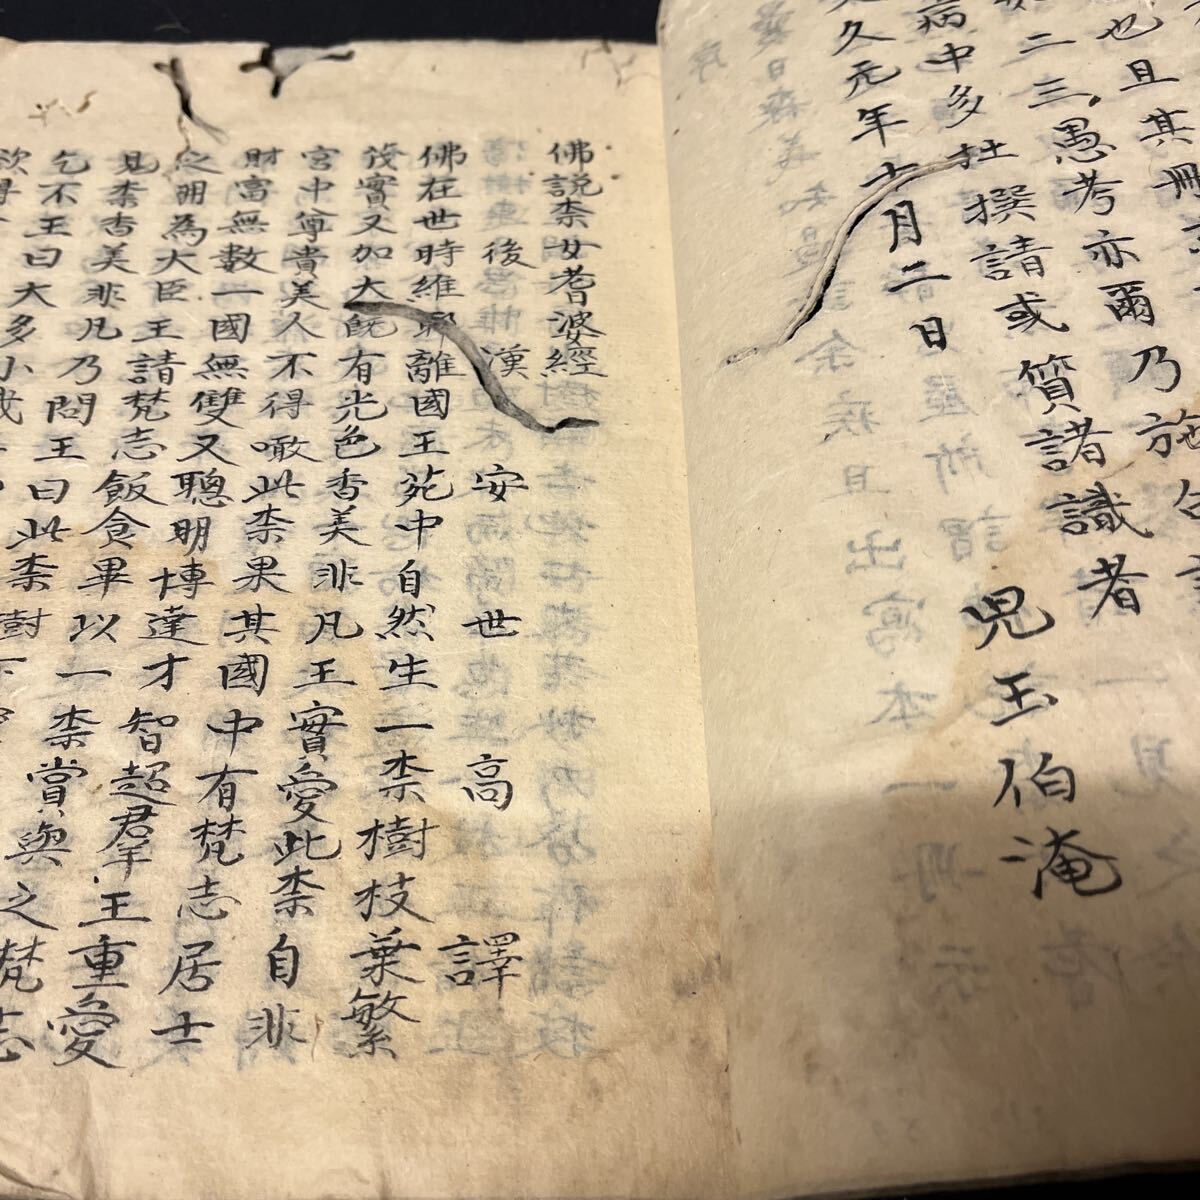 也且其冊
二三愚考亦爾乃施
病中多杜撰請或質諸識者
久元年十月二日
児玉伯淹
佛説柰女耆婆經
後漢 安世高譯
佛在世時維耶離國王苑中自然生一柰樹枝葉繁
茂實又加大既有光色香美非凡王實愛此柰自非
宮中尊貴美人不得噉此柰果其國中有梵志居士
財富無數一國無雙又聰明博達才智超羣王重愛
之用為大臣王請梵志飯食畢以一柰賞與之梵志
見柰香美非凡乃問王曰此柰樹下
乞不王曰大多小